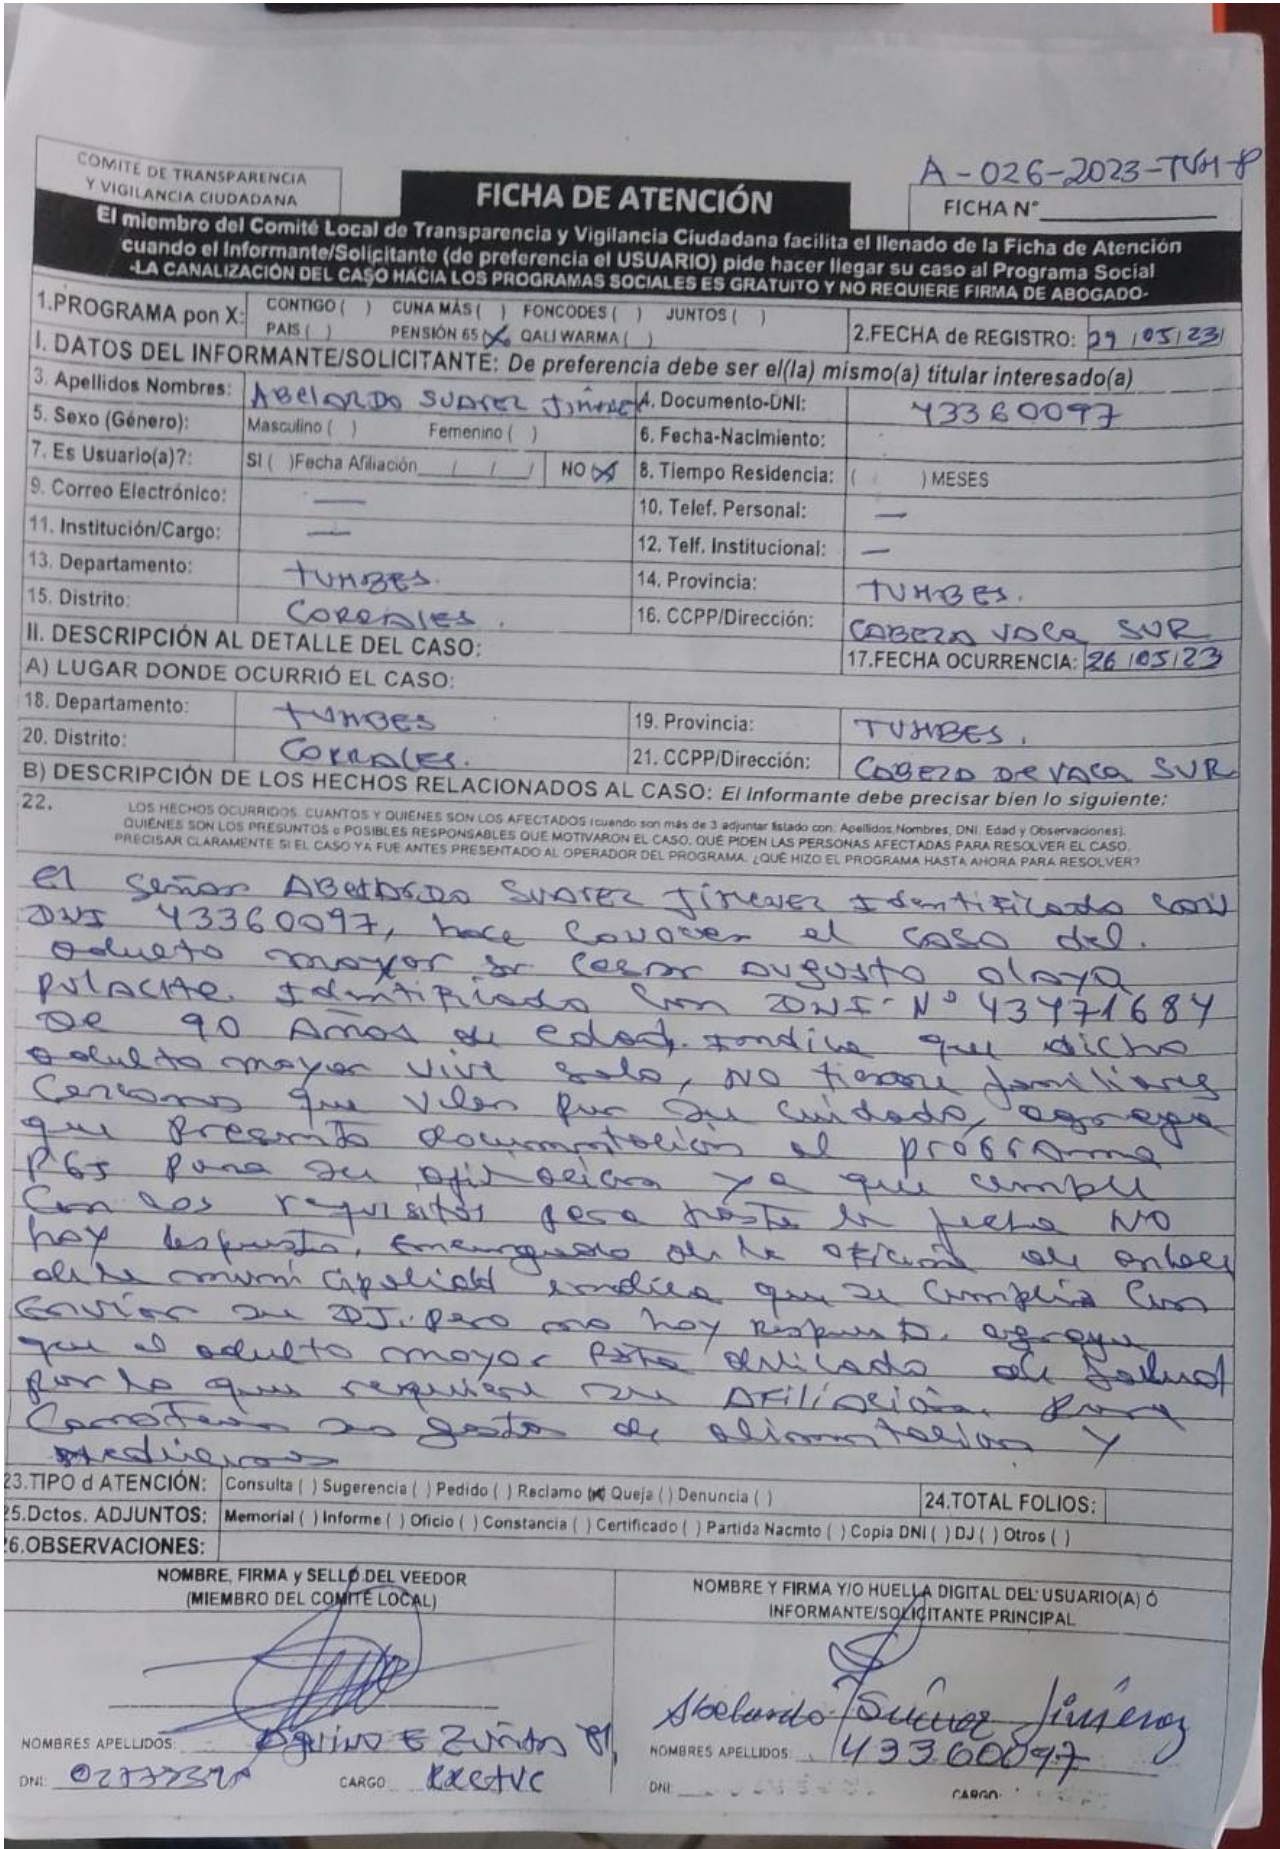 COMITÉ DE TRANSPARENCIA
Y VIGILANCIA CIUDADANA
FICHA DE ATENCIÓN
A-026-2023-TVM-P
FICHA N°
El miembro del Comité Local de Transparencia y Vigilancia Ciudadana facilita el llenado de la Ficha de Atención
cuando el Informante/Solicitante (de preferencia el USUARIO) pide hacer llegar su caso al Programa Social
-LA CANALIZACIÓN DEL CASO HACIA LOS PROGRAMAS SOCIALES ES GRATUITO Y NO REQUIERE FIRMA DE ABOGADO-
1.PROGRAMA pon X: CONTIGO ( ) CUNA MÁS ( ) FONCODES ( ) JUNTOS ( )
PAIS ( ) PENSIÓN 65 (X) QALI WARMA ( ) 2.FECHA de REGISTRO: 29/05/23
I. DATOS DEL INFORMANTE/SOLICITANTE: De preferencia debe ser el(la) mismo(a) titular interesado(a)
3. Apellidos Nombres: ABELARDO SUAREZ JIMENEZ 4. Documento-DNI: 43360097
5. Sexo (Género): Masculino ( ) Femenino ( ) 6. Fecha-Nacimiento:
7. Es Usuario(a)?: SI ( )Fecha Afiliación / / / NO (X) 8. Tiempo Residencia: ( ) MESES
9. Correo Electrónico: — 10. Telef. Personal: —
11. Institución/Cargo: — 12. Telf. Institucional: —
13. Departamento: TUMBES. 14. Provincia: TUMBES.
15. Distrito: CORRALES. 16. CCPP/Dirección: CABEZA VACA SUR
II. DESCRIPCIÓN AL DETALLE DEL CASO: 17.FECHA OCURRENCIA: 26/05/23
A) LUGAR DONDE OCURRIÓ EL CASO:
18. Departamento: TUMBES 19. Provincia: TUMBES.
20. Distrito: CORRALES. 21. CCPP/Dirección: CABEZA DE VACA SUR
B) DESCRIPCIÓN DE LOS HECHOS RELACIONADOS AL CASO: El Informante debe precisar bien lo siguiente:
22. LOS HECHOS OCURRIDOS. CUANTOS Y QUIENES SON LOS AFECTADOS (cuando son más de 3 adjuntar listado con: Apellidos, Nombres, DNI, Edad y Observaciones).
QUIÉNES SON LOS PRESUNTOS o POSIBLES RESPONSABLES QUE MOTIVARON EL CASO. QUÉ PIDEN LAS PERSONAS AFECTADAS PARA RESOLVER EL CASO.
PRECISAR CLARAMENTE SI EL CASO YA FUE ANTES PRESENTADO AL OPERADOR DEL PROGRAMA. ¿QUÉ HIZO EL PROGRAMA HASTA AHORA PARA RESOLVER?
el señor ABELARDO SUAREZ JIMENEZ Identificado con
DNI 43360097, hace conocer el caso del.
adulto mayor sr cesar augusto olaya
PULACHE. Identificado con DNI N° 43471684
DE 90 Años de edad. indica que dicho
adulto mayor vive solo, NO tiene familiares
cercanos que velen por su cuidado, agrega
que presento documentación al programa
P65 para su afiliacion ya que cumple
con los requisitos pero hasta la fecha NO
hay respuesta, encargado de la oficina de enlace
de la municipalidad indica que se cumplio con
enviar su DJ. pero no hay respuesta. agrega
que el adulto mayor esta delicado de salud
por lo que requiere su AFILIACIÓN para
sus gastos de alimentacion y
medicinas
23.TIPO d ATENCIÓN: Consulta ( ) Sugerencia ( ) Pedido ( ) Reclamo (X) Queja ( ) Denuncia ( ) 24.TOTAL FOLIOS:
25.Dctos. ADJUNTOS: Memorial ( ) Informe ( ) Oficio ( ) Constancia ( ) Certificado ( ) Partida Nacmto ( ) Copia DNI ( ) DJ ( ) Otros ( )
26.OBSERVACIONES:
NOMBRE, FIRMA y SELLO DEL VEEDOR
(MIEMBRO DEL COMITÉ LOCAL)
NOMBRE Y FIRMA Y/O HUELLA DIGITAL DEL USUARIO(A) Ó
INFORMANTE/SOLICITANTE PRINCIPAL
Abelardo Suarez Jiménez
NOMBRES APELLIDOS:
NOMBRES APELLIDOS: 43360097
DNI: CARGO
DNI: CARGO: